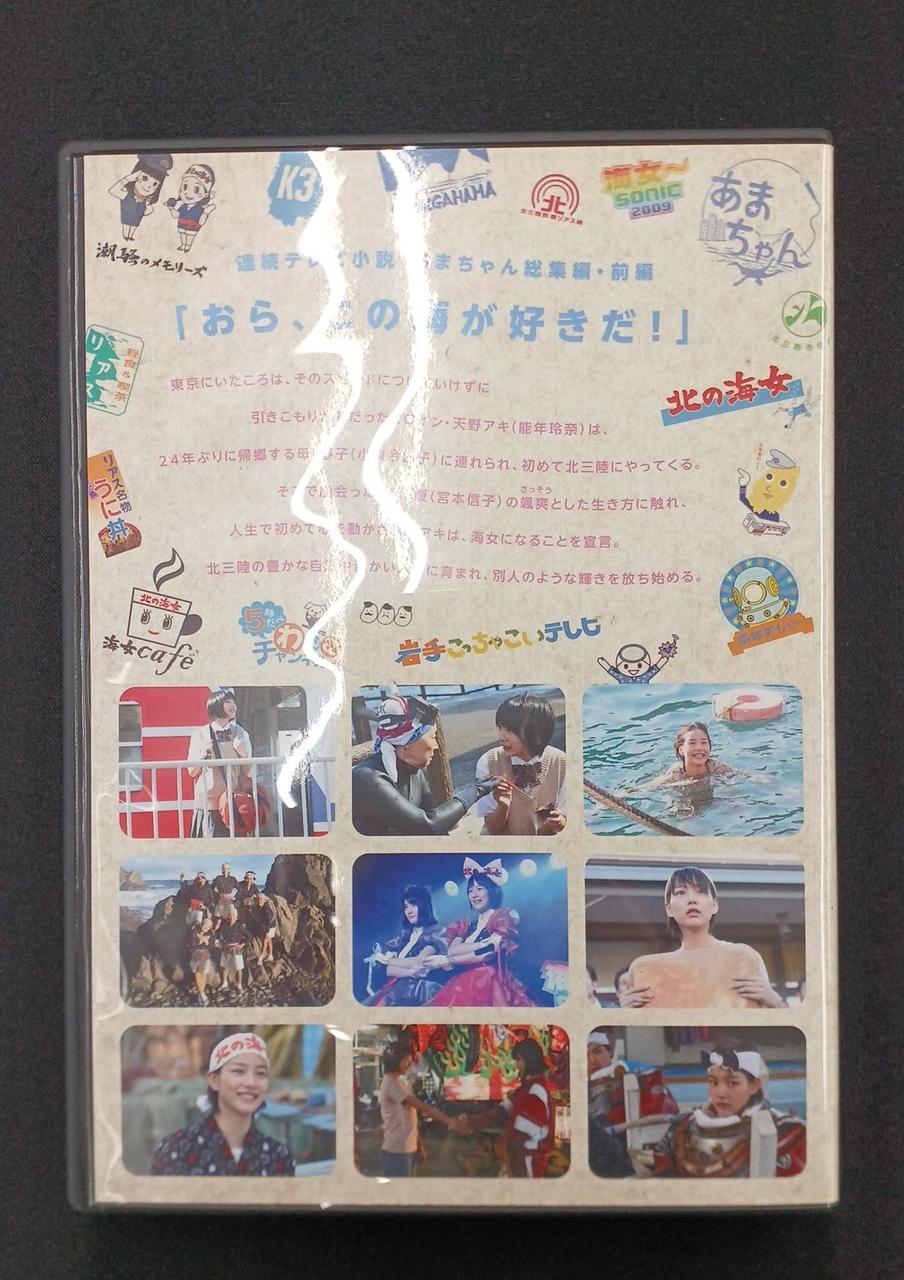 K3
海女～
SONIC
2009
北
あま
ちゃん
潮騒のメモリーズ
連続テレビ小説 あまちゃん総集編・前編
「おら、この海が好きだ!」
リアス
軽食&喫茶
北の海女
東京にいたころは、そのス
いけずに
引きこもり
だった
ン・天野アキ(能年玲奈)は、
24年ぶりに帰郷する母
子(小
子)に連れられ、初めて北三陸にやってくる。
さっそう
そこで出会った
夏(宮本信子)の颯爽とした生き方に触れ、
人生で初めて心を動か
アキは、海女になることを宣言。
北三陸の豊かな自
かい
に育まれ、別人のような輝きを放ち始める。
リアス名物
うに丼
北の海女
海女café
5時だべ
わ
チャン
岩手こっちゃこいテレビ
南部ダイバー
北の海女
北の海